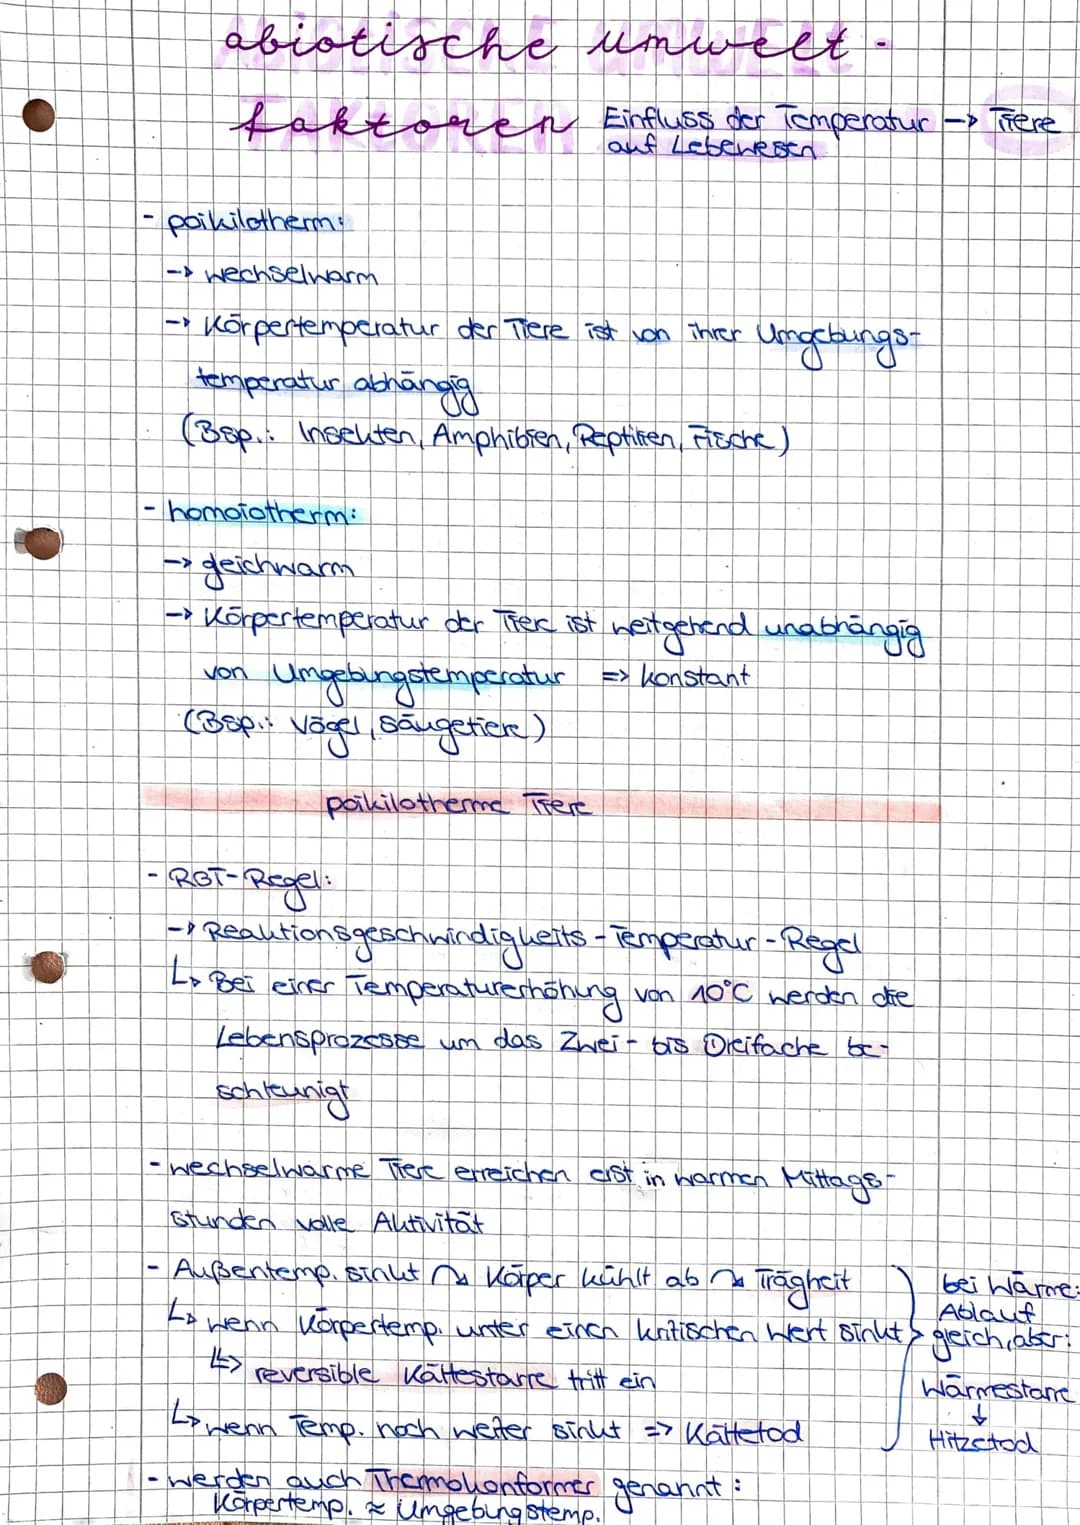 abiotische umwelt-
faktoren
Einfluss der Temperatur -> Tiere
auf Lebewesen
- poikilotherm:
-> wechselwarm
-> Körpertemperatur der Tiere ist von ihrer Umgebungs-
temperatur abhängig
(Bsp.: Insekten, Amphibien, Reptilien, Fische)
- homoiotherm:
-> gleichwarm
-> Körpertemperatur der Tiere ist weitgehend unabhängig
von Umgebungstemperatur => konstant
(Bsp.: Vögel, Säugetiere)
poikilotherme Tiere
- RGT-Regel:
-> Reaktionsgeschwindigkeits-Temperatur-Regel
↳ Bei einer Temperaturerhöhung von 10°C werden die
Lebensprozesse um das Zwei- bis Dreifache be-
schleunigt
- wechselwarme Tiere erreichen erst in warmen Mittags-
stunden volle Aktivität
- Außentemp. sinkt ↷ Körper kühlt ab ↷ Trägheit
↳ wenn Körpertemp. unter einen kritischen Wert sinkt
↳> reversible Kältestarre tritt ein
↳ wenn Temp. noch weiter sinkt => Kältetod
bei Wärme:
Ablauf
gleich, aber:
Wärmestarre
↓
Hitzetod
- werden auch Thermokonformer genannt:
Körpertemp. ≈ Umgebungstemp.